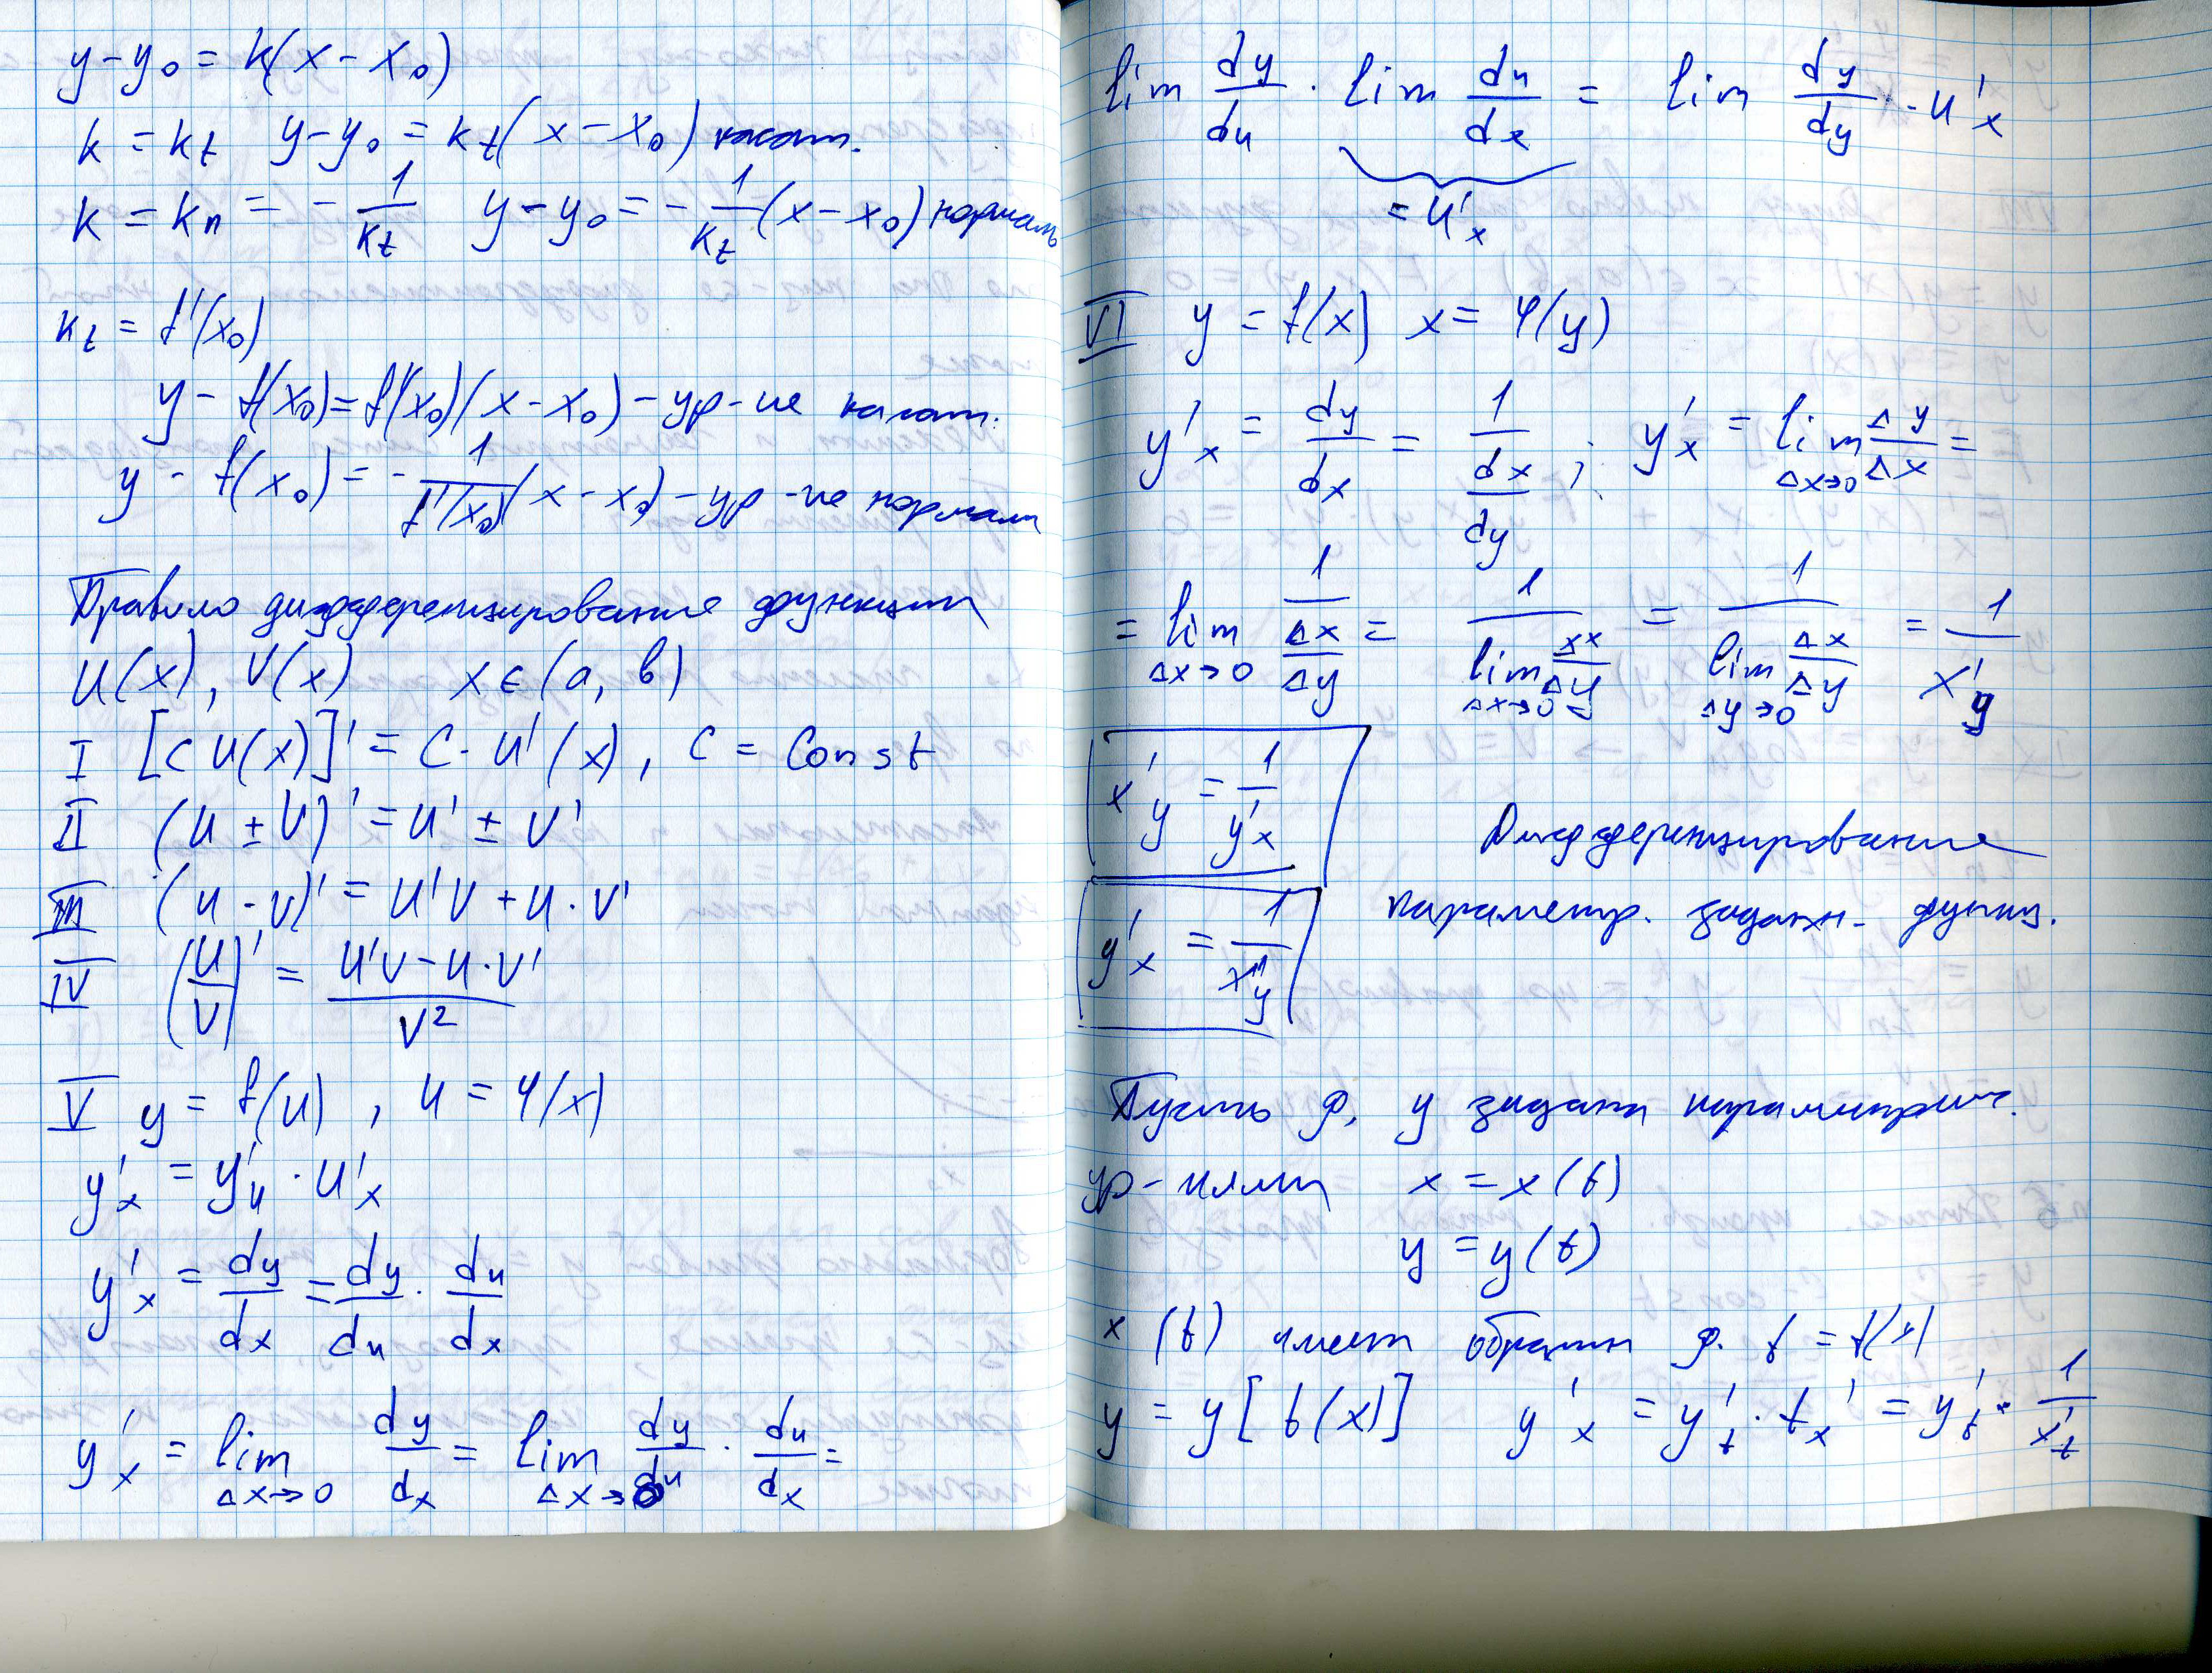 y - y₀ = k(x - x₀)
k = k_t   y - y₀ = k_t(x - x₀) касат.
k = k_n = - 1/k_t   y - y₀ = - 1/k_t (x - x₀) нормаль
k_t = f'(x₀)
y - f(x₀) = f'(x₀)(x - x₀) - ур-ие касат.
y - f(x₀) = - 1/f'(x₀) (x - x₀) - ур-ие нормали
Правило дифференцирование функции
U(x), V(x)   x ∈ (a, b)
I [C U(x)]' = C · U'(x), C = Const
II (U ± V)' = U' ± V'
III (U · V)' = U'V + U · V'
IV (U/V)' = (U'V - U · V')/V²
V y = f(u), u = φ(x)
y'ₓ = y'ᵤ · u'ₓ
y'ₓ = dy/dx = dy/du · du/dx
y'ₓ = lim Δx→0 dy/dx = lim Δx→0 dy/du · du/dx =
lim dy/du · lim du/dx = lim dy/dy · u'ₓ
= u'ₓ
VI y = f(x)   x = φ(y)
y'ₓ = dy/dx = 1/(dx/dy) ; y'ₓ = lim Δx→0 Δy/Δx =
= lim Δx→0 1/(Δx/Δy) = 1/(lim Δx→0 Δx/Δy) = 1/(lim Δy→0 Δx/Δy) = 1/x'_y
x'_y = 1/y'ₓ
Дифференцирование
y'ₓ = 1/x'_y
параметр. заданн. функц.
Пусть ф. y задана параметрич.
ур-иями   x = x(t)
y = y(t)
x(t) имеет обратн ф. t = t(x)
y = y[t(x)]   y'ₓ = y'_t · t'ₓ = y'_t · 1/x'_t